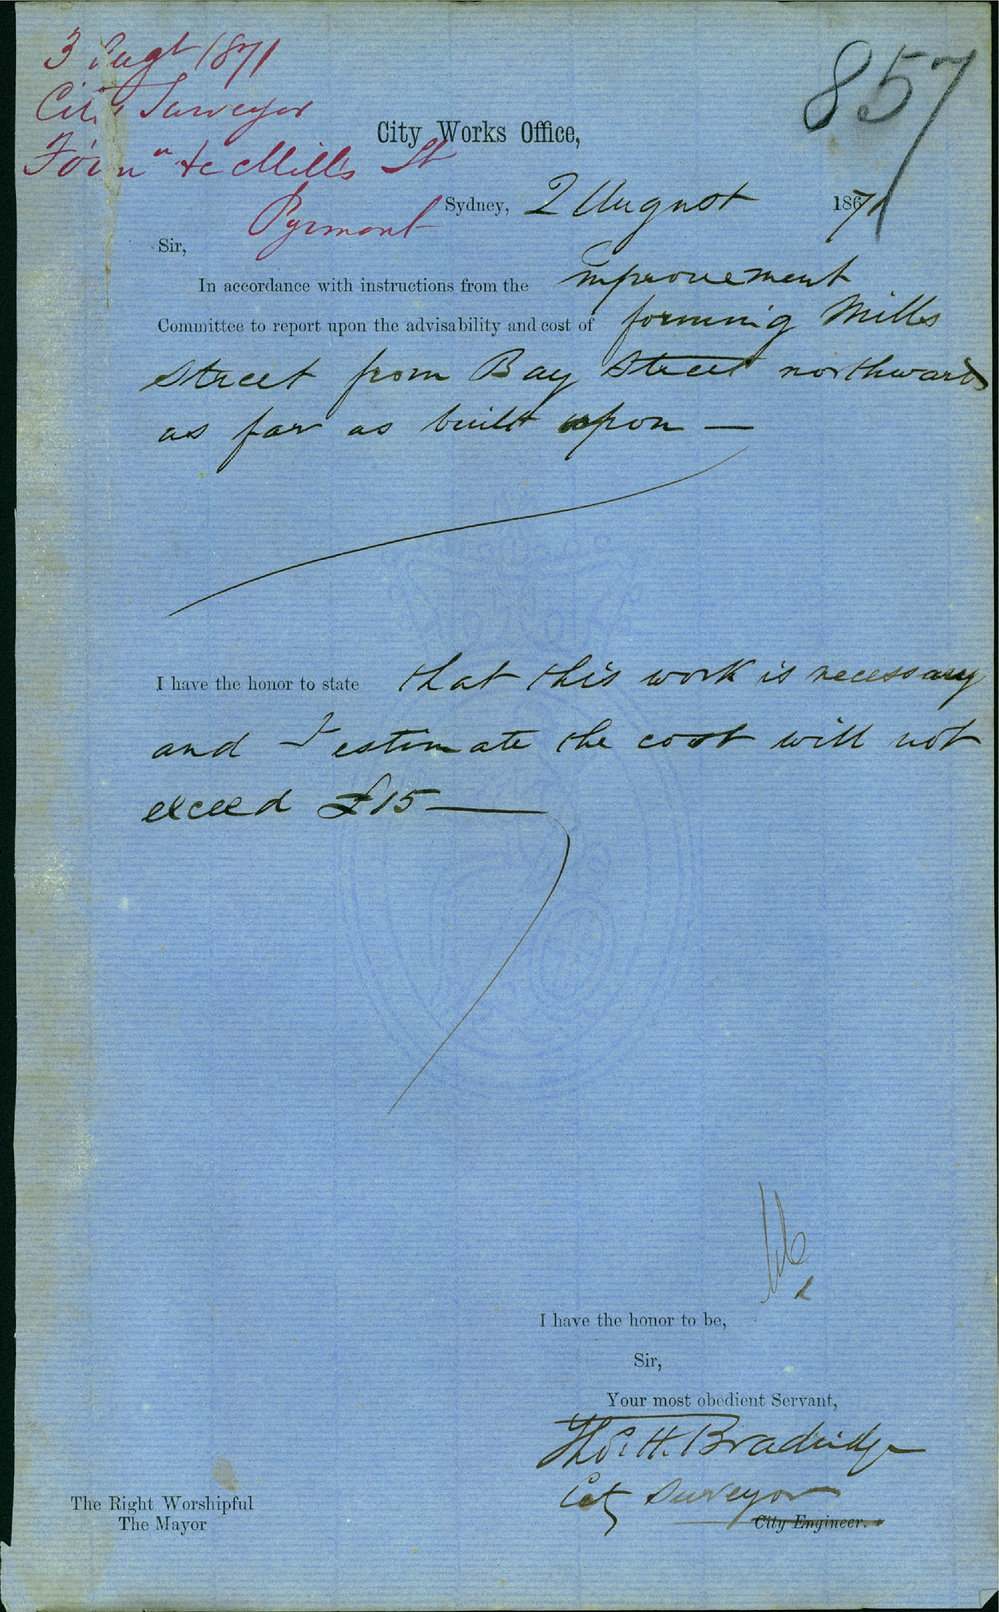 3 Augt 1871
City Surveyor
Formn &c Mills St
Pyrmont
857
City Works Office,
Sydney, 2 August 1871
Sir,
In accordance with instructions from the Improvement
Committee to report upon the advisability and cost of forming Mills
Street from Bay Street northwards
as far as built upon —
I have the honor to state that this work is necessary
and I estimate the cost will not
exceed £15 —
I have the honor to be,
Sir,
Your most obedient Servant,
Thos. H. Bradridge
City Surveyor
City Engineer.
The Right Worshipful
The Mayor